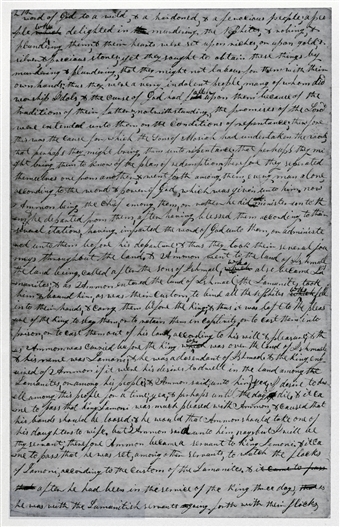 word of God to a wild & a hardened & a ferocious people a peo
ple who delighted in murdering the Nephites & robing &
plundering them & their hearts were set upon riches or upon gold &
silver & precious stones yet they sought to obtain these things by
murdering & plundering that they might not labour for them with their
own hands thus they were a very indolent People many of whom did
worship Idols & the curse of God had fallen upon them because of the
traditions of their Fathers notwithstanding the promises of the Lord
were extended unto them on the conditions of repentance therefore
this was the cause for which the Sons of Mosiah had undertaken the work
that perhaps they might bring them unto repentance that perhaps they mi
ght bring them to know of the plan of redemption therefore they seperated
themselves one from another & went forth among them every man alone
according to the word & power of God which was given unto him now
Ammon being the chief among them or rather he did administer unto th
em he departed from them after having blessed them according to their
several stations having imparted the word of God unto them or administe
red unto them before his departure & thus they took their several jour
neys throughout the land & Ammon went to the land of Ishmael
the land being called after the sons of Ishmael which also became La
manites & as Ammon entered the land of Ishmael the Lamanites took
him & bound him as was their custom to bind all the Nephites which fell
into their hands & carry them before the King & thus it was left to the pleas
ure of the King to slay them or to retain them in captivity or to cast them into
prison or to cast them out of his land according to his will & pleasure & th
us Ammon was carried before the King which was over the land of Ishmael
& his name was Lamoni & he was a desendant of Ishmael & the King enq
uired of Ammon if it were his desires to dwell in the land among the
Lamanites or among his people & Ammon said unto him yea I desire to dw
ell among this people for a time yea & perhaps until the day I die & it ca
me to pass that king Lamoni was much pleased with Ammon & caused that
his bands should be loosed & he would that Ammon should take one of
his daughters to wife but Ammon said unto him nay but I will be
thy servant therefore Ammon became a servant to King Lamoni & it ca
me to pass that he was set among other servants to watch the flocks
of Lamoni according to the custom of the Lamanites & it came to pass
after he had been in the service of the King three days as
he was with the Lamanitish servants going forth with their flocks